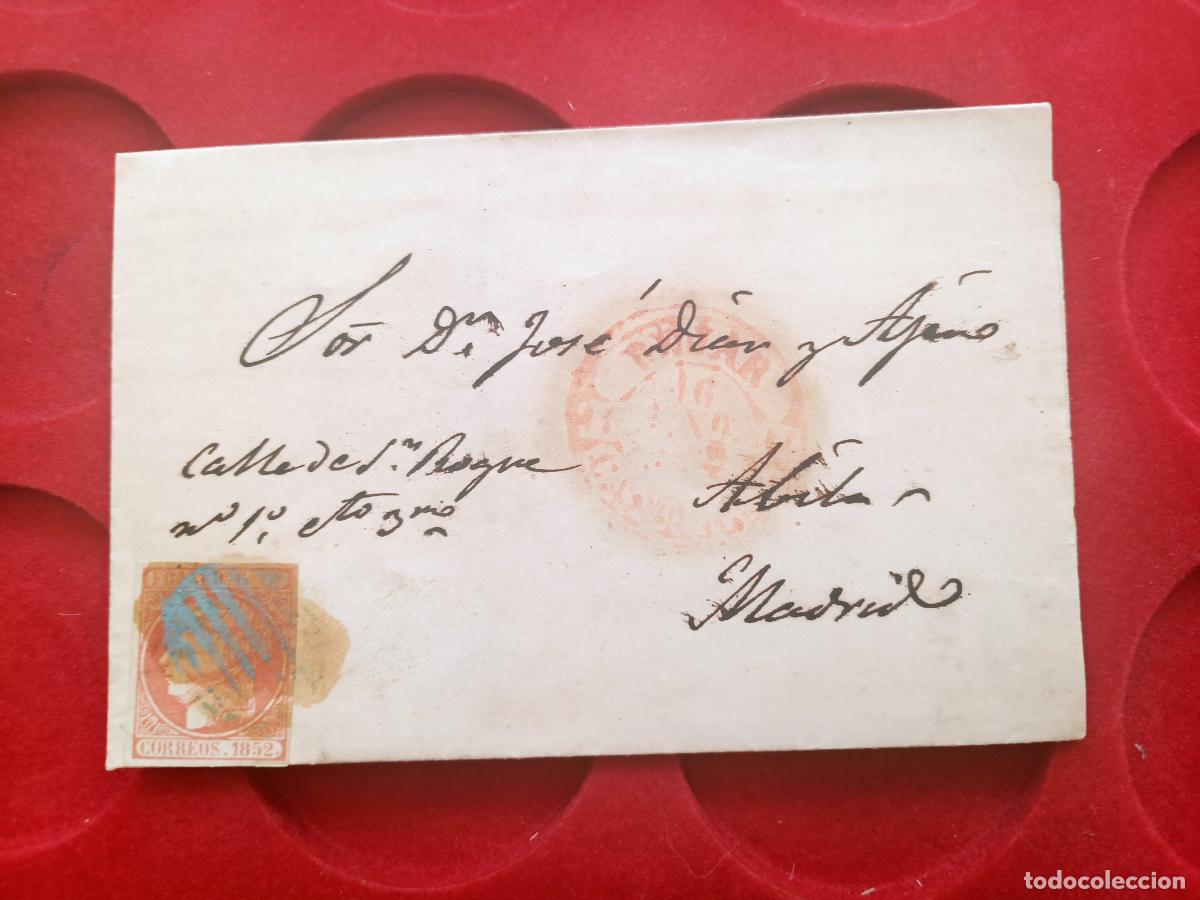 Sor Dn José Dian y Ajero
Calle de Sn Roque
no 1o cto 3ro
Madrid
16
CORREOS. 1852.
todocoleccion